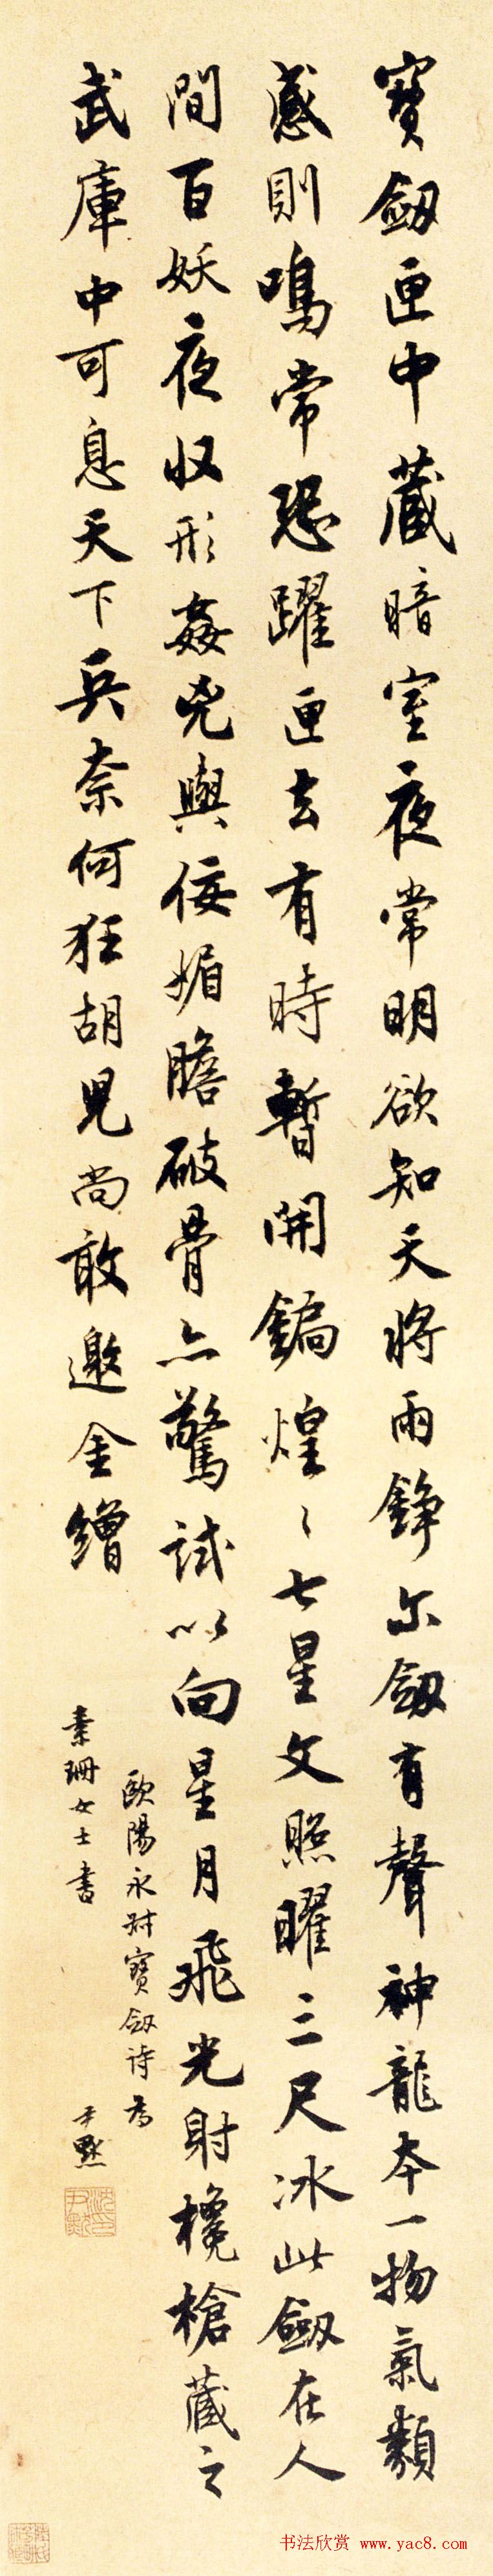 寶劒匣中藏暗室夜常明欲知天將雨錚尓劒有聲神龍本一物氣類
感則鳴常恐躍匣去有時暫開鐍煌〻七星文照曜三尺冰此劒在人
間百妖夜収形姦兇與佞媚膽破骨亦驚試以向星月飛光射欃槍藏之
武庫中可息天下兵奈何狂胡兒尚敢邀金繒
歐陽永叔寶劒诗为
素珊女士書
尹默
沈尹默
书法欣赏 www.yac8.com